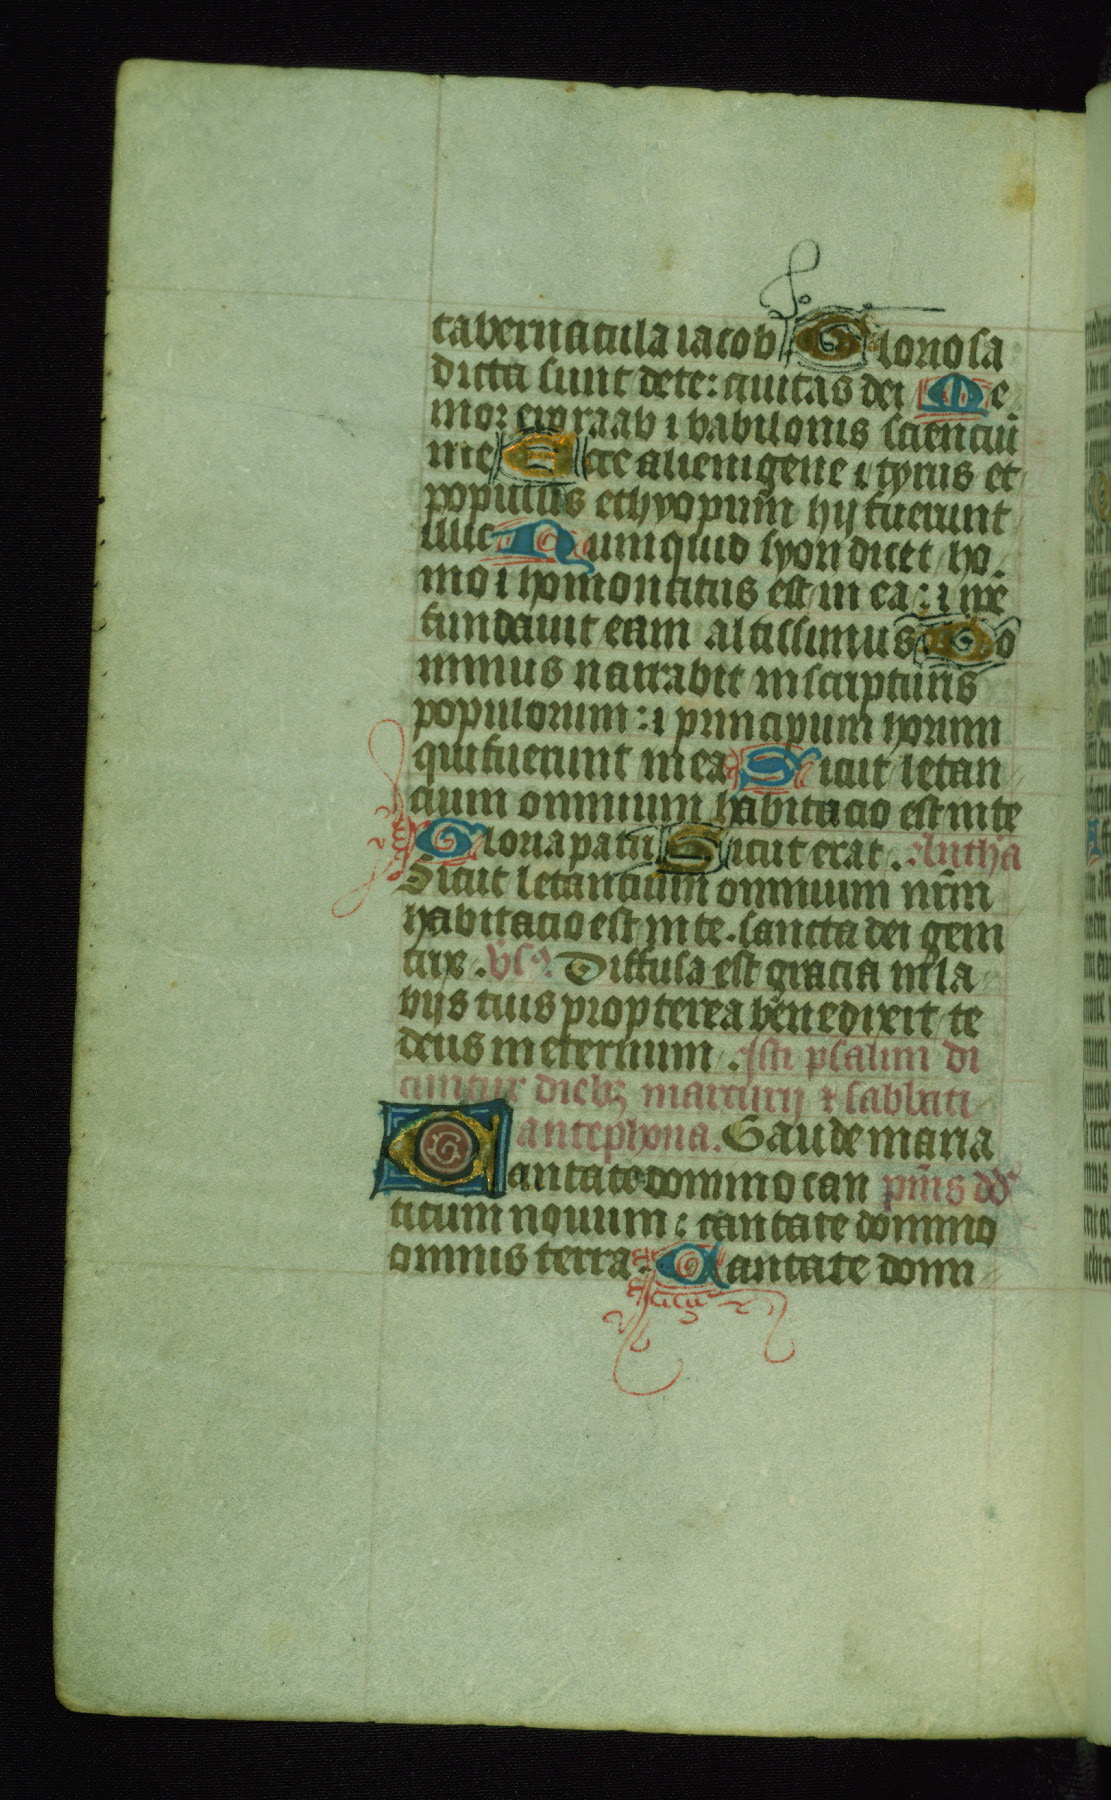 tabernacula iacob Gloriosa
dicta sunt de te: civitas dei Me
mor ero raab ⁊ babilonis scienciũ
me Ecce alienigene ⁊ tyrus et
populus ethyopum hij fuerunt
illic Numquid syon dicet ho.
mo ⁊ homo natus est in ea: ⁊ ip̃e
fundavit eam altissimus Do
minus narrabit in scripturis
populorum: ⁊ principum horum
qui fuerunt in ea Sicut letan
cium omnium habitacio est in te
Gloria patri Sicut erat. Antha
Sicut letancium omnium nr̃m
habitacio est in te. sancta dei geni
trix. vs̃ Diffusa est gracia in la
bijs tuis propterea benedixit te
deus in eternum. Isti psalmi di
cuntur dieb; martirij ⁊ sabbati
antephona. Gaude maria
Cantate domino can pm̃s dd̃
ticum nouum: cantate domino
omnis terra. Cantate domi